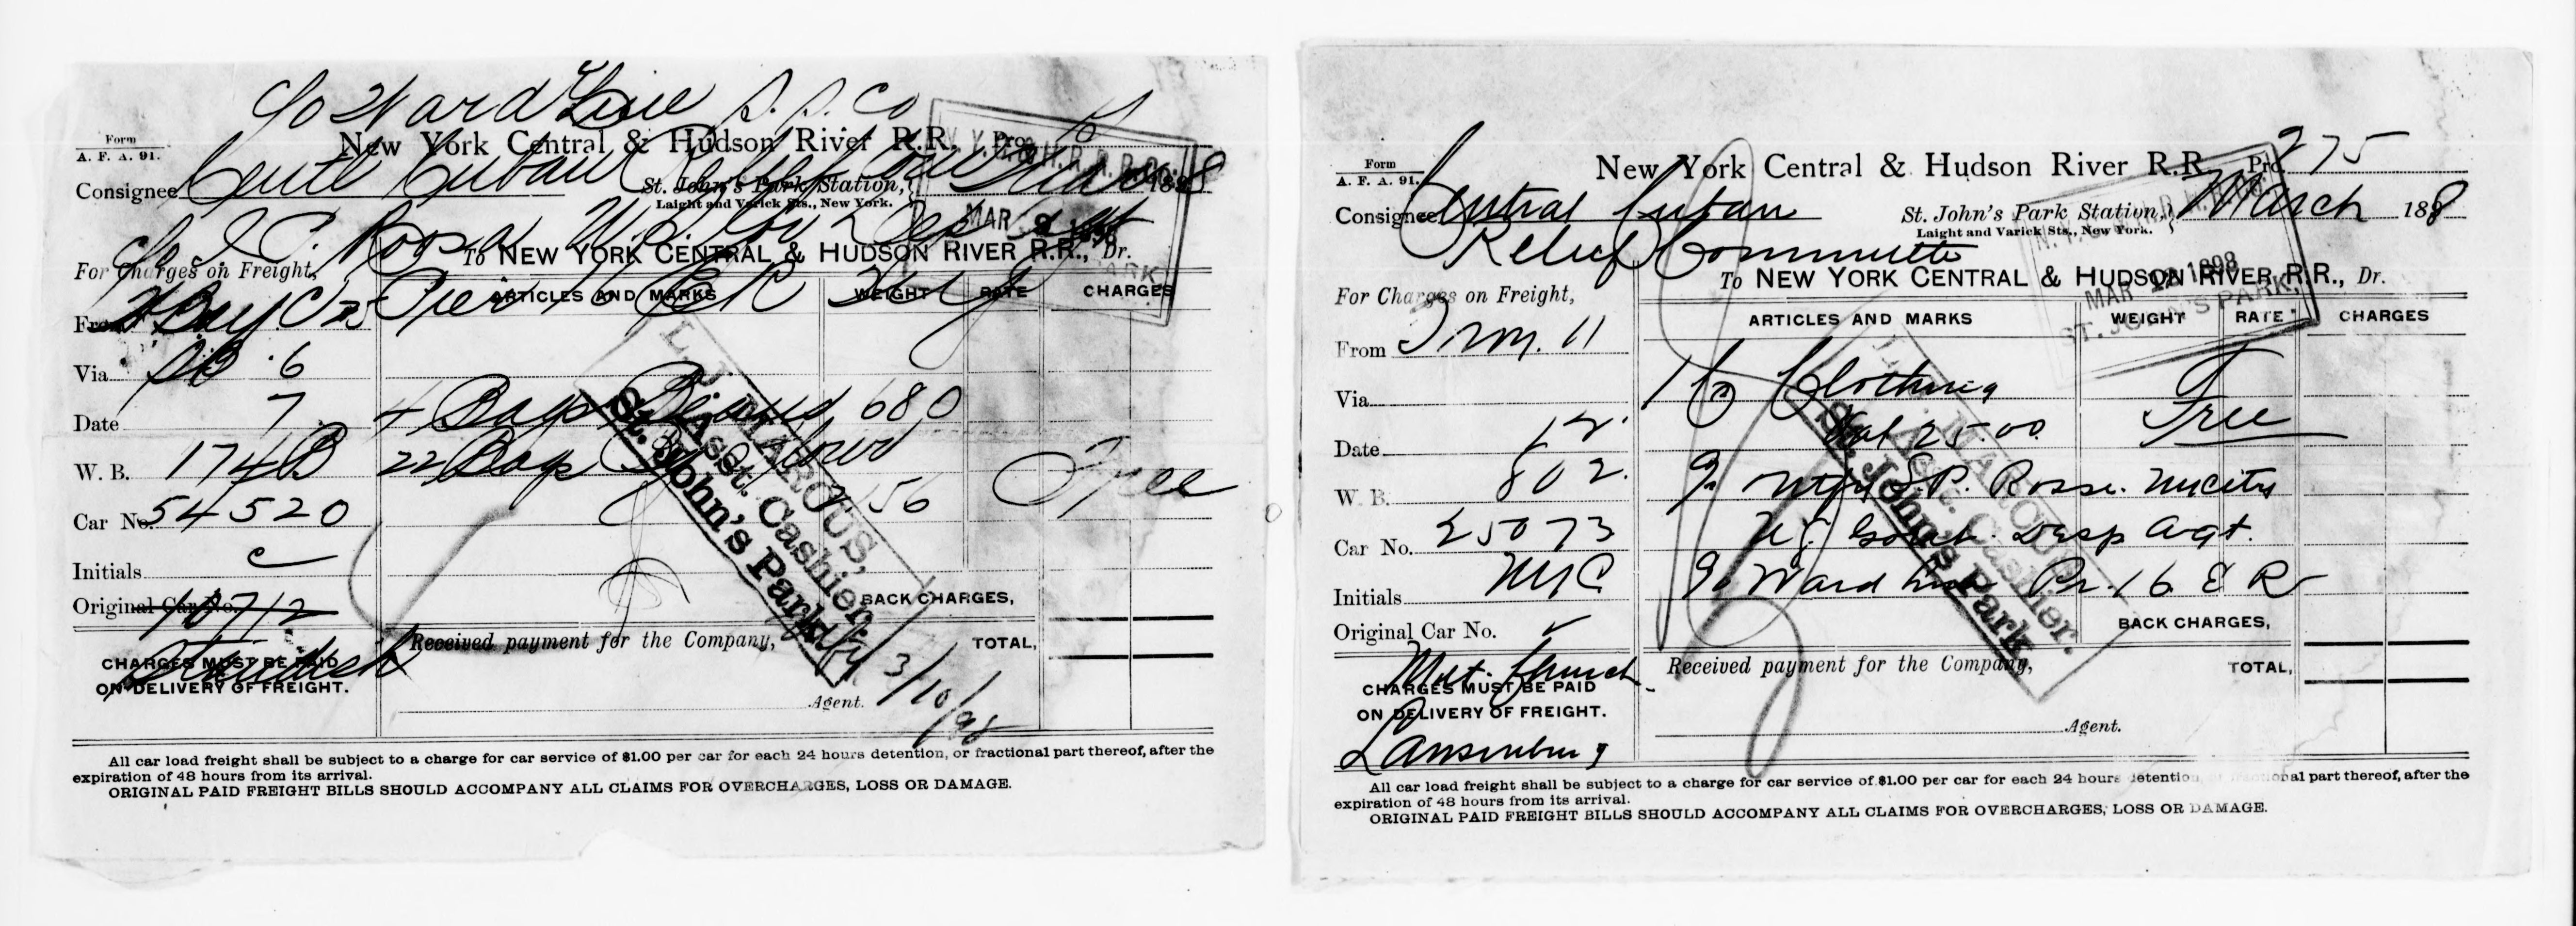 c/o Ward Line S. S. Co
Form
A. F. A. 91.
New York Central & Hudson River R.R. Pro.
Consignee Centl Cuban Relief Com
St. John's Park Station,
Laight and Varick Sts., New York.
188
MAR 9 1898
c/o
To NEW YORK CENTRAL & HUDSON RIVER R.R., Dr.
For Charges on Freight,
Pier 16 ER
ARTICLES AND MARKS WEIGHT RATE CHARGES
From
Via 6
Date 7 4 Bags Beans 680
W. B. 174B 22 Bags
Car No. 54520 156 Free
Initials C
Original Car No. 10712
BACK CHARGES,
Received payment for the Company, TOTAL,
CHARGES MUST BE PAID
ON DELIVERY OF FREIGHT.
Agent. 3/10/98
L. J. MARCUS,
Asst. Cashier.
St. John's Park.
All car load freight shall be subject to a charge for car service of $1.00 per car for each 24 hours detention, or fractional part thereof, after the
expiration of 48 hours from its arrival.
ORIGINAL PAID FREIGHT BILLS SHOULD ACCOMPANY ALL CLAIMS FOR OVERCHARGES, LOSS OR DAMAGE.
Form
A. F. A. 91.
New York Central & Hudson River R.R. Pro. 275
Consignee Central Cuban
Relief Committee
St. John's Park Station,
Laight and Varick Sts., New York.
March 188
MAR 1898
ST. JOHN'S PARK
To NEW YORK CENTRAL & HUDSON RIVER R.R., Dr.
For Charges on Freight,
ARTICLES AND MARKS WEIGHT RATE CHARGES
From 11
Via 1 Clothing
Val 25.00 Free
Date 12.
W. B. 802.
Car No. 25073 U.S. Govt. Desp Agt.
Initials NYC c/o Ward Line Pr. 16 E R
Original Car No.
BACK CHARGES,
Met. Church
Received payment for the Company, TOTAL,
CHARGES MUST BE PAID
ON DELIVERY OF FREIGHT.
Lansinburg
Agent.
L. J. MARCUS,
Asst. Cashier.
St. John's Park.
All car load freight shall be subject to a charge for car service of $1.00 per car for each 24 hours detention, or fractional part thereof, after the
expiration of 48 hours from its arrival.
ORIGINAL PAID FREIGHT BILLS SHOULD ACCOMPANY ALL CLAIMS FOR OVERCHARGES, LOSS OR DAMAGE.